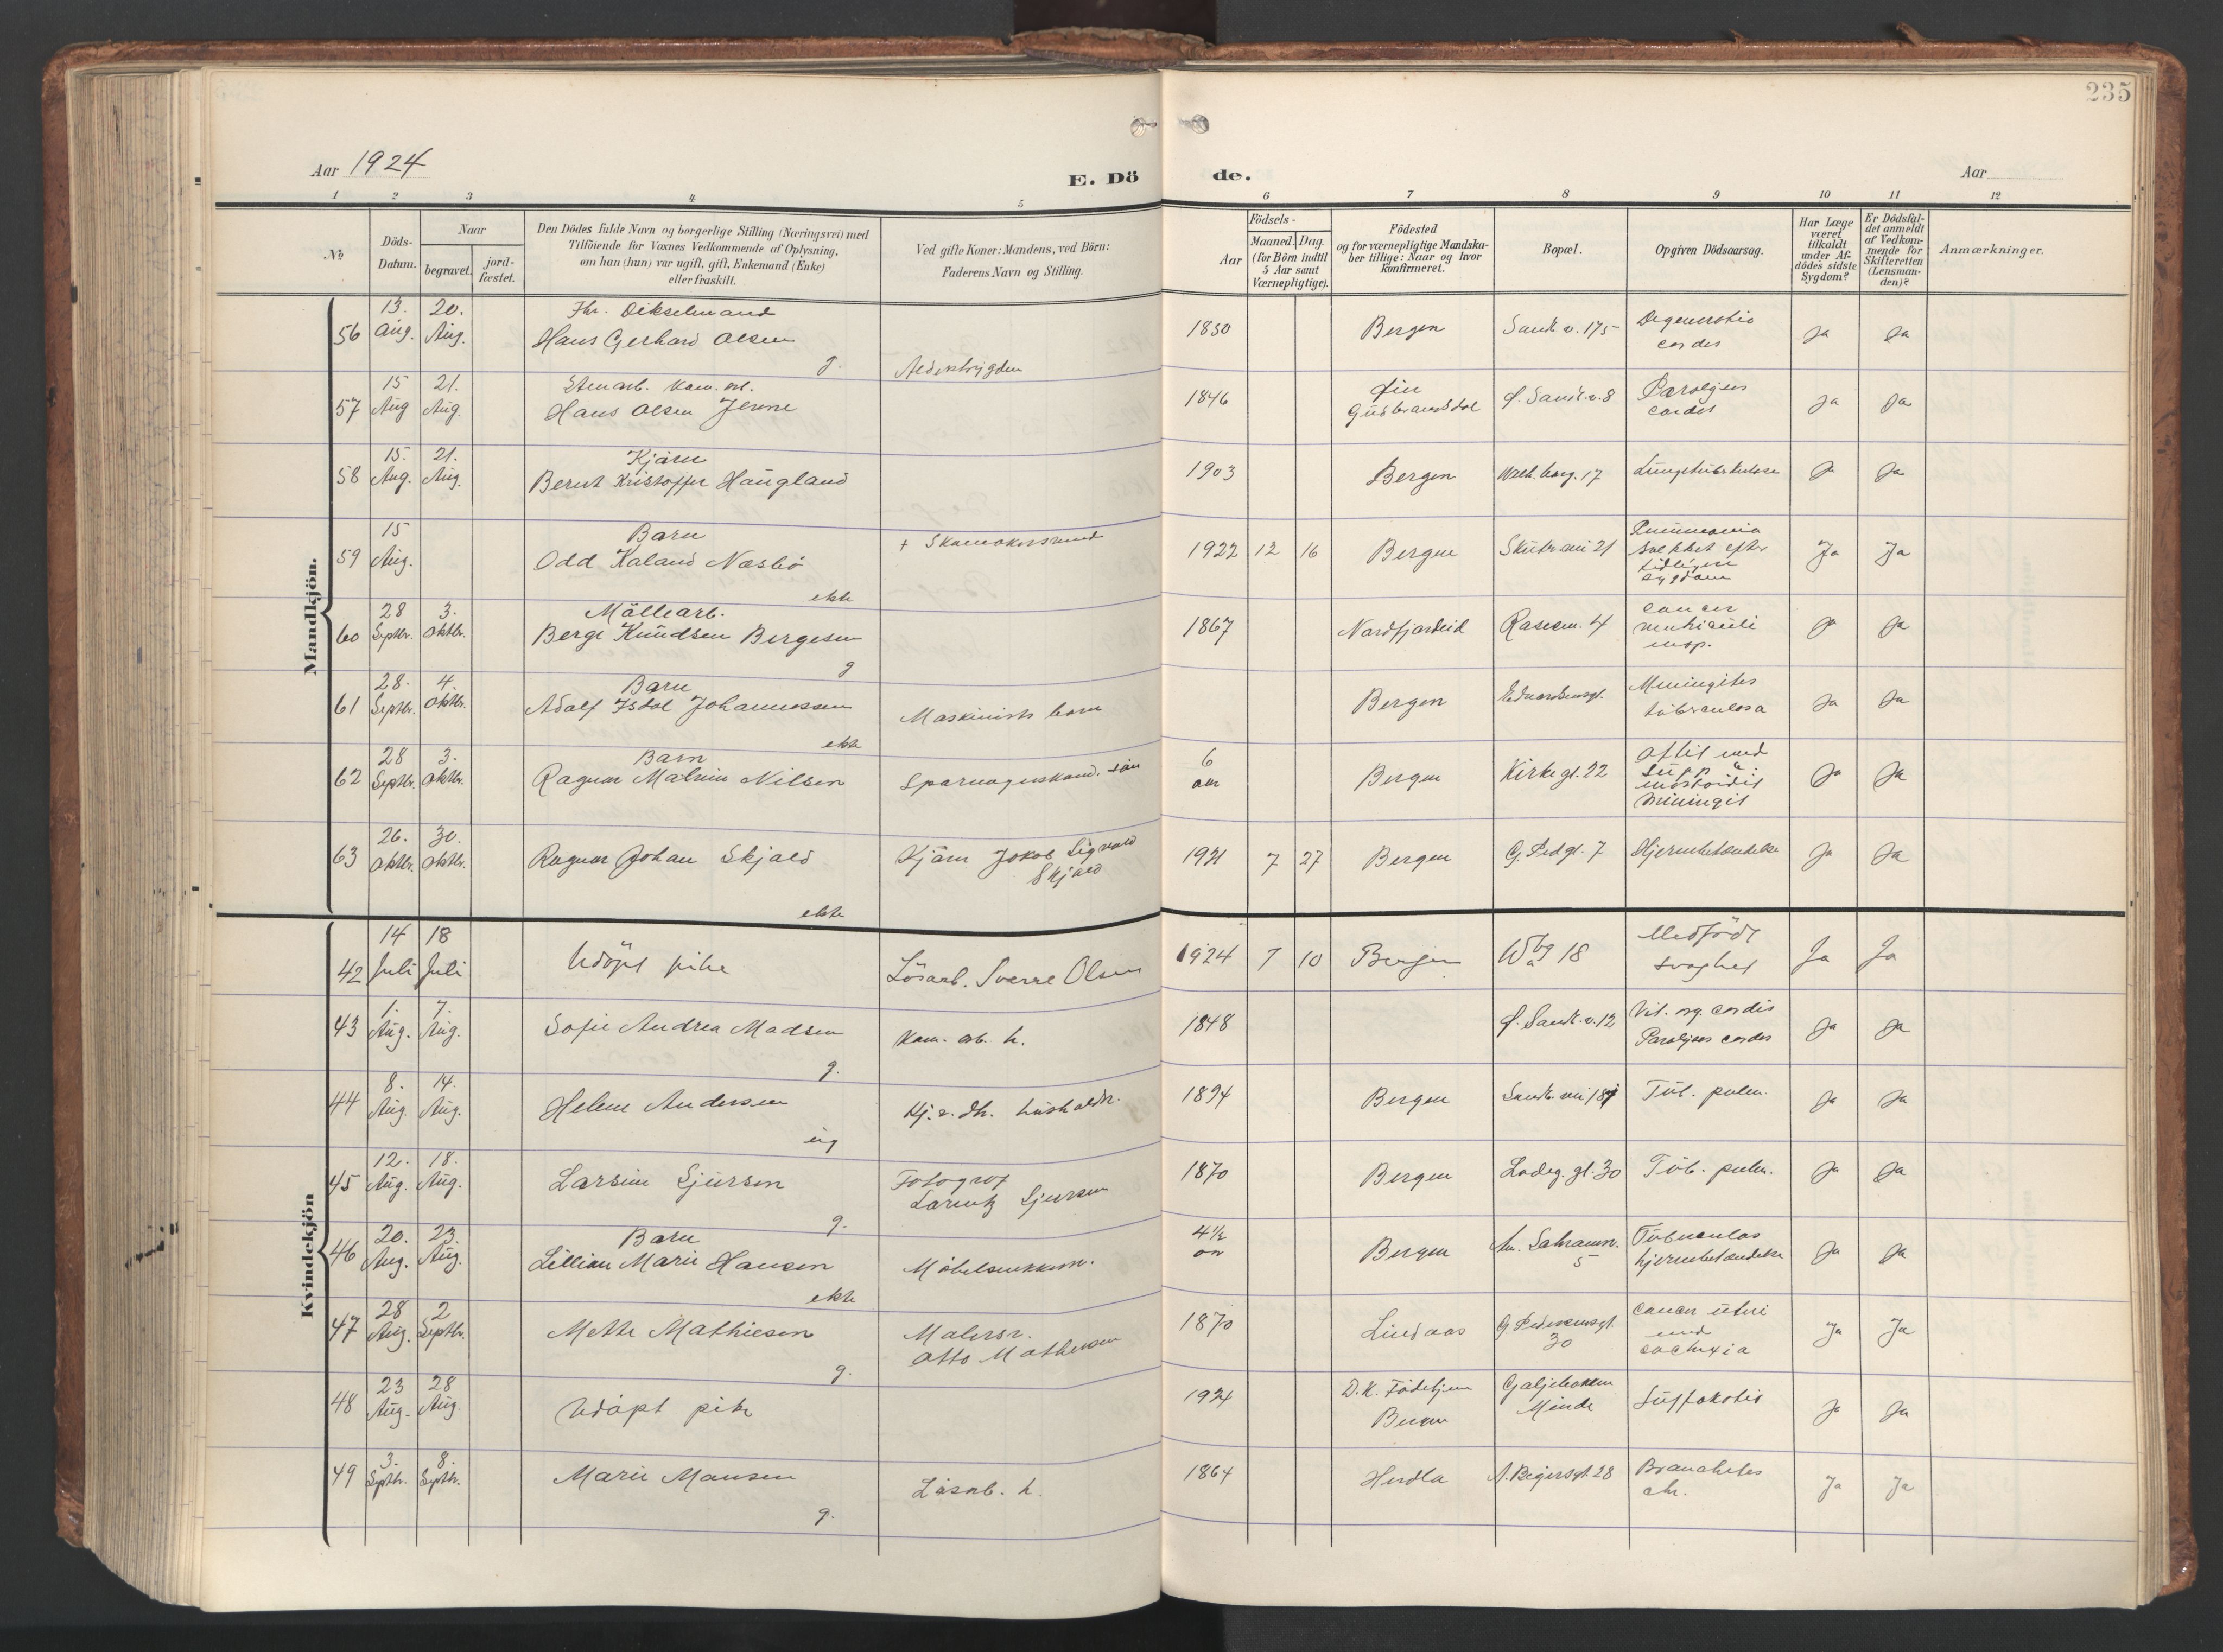 235
Aar 1924
E. Dö
de.
Aar
1 2 3 4 5 6 7 8 9 10 11 12
№
Döds-
Datum.
Naar
begravet.
jord-
fæstet.
Den Dödes fulde Navn og borgerlige Stilling (Næringsvei) med
Tilföiende for Voxnes Vedkommende af Oplysning,
om han (hun) var ugift, gift, Enkemand (Enke)
eller fraskilt.
Ved gifte Koner: Mandens, ved Börn:
Faderens Navn og Stilling.
Födsels-
Aar
Maaned. Dag.
(for Börn indtil
5 Aar samt
Værnepligtige).
Födested
og for værnepligtige Mandska-
ber tillige: Naar og hvor
Konfirmeret.
Bopæl.
Opgiven Dödsaarsag.
Har Læge
været
tilkaldt
under Af-
dödes sidste
Sygdom?
Er Dödsfal-
det anmeldt
af Vedkom-
mende for
Skifteretten
(Lensman-
den)?
Anmærkninger.
Mandkjön.
56 13. Aug. 20. Aug.
Hans Gerhard Olsen
g.
1850 Bergen Sandv. v. 175 Degeneratio
cordis
Ja Ja
57 15 Aug 21. Aug.
Hans Olsen
1846
Gudbrandsdal
Paralyses
cordis
Ja Ja
58 15. Aug. 21. Aug.
Bernt Kristoffer Haugland
1903 Bergen 17 Lungetuberkulose Ja Ja
59 15 Aug.
Barn
Odd Kaland Næsbö
ekte
1922 12 16 Bergen 21
Pneumonia
svekket efter
tidligere
sygdom
Ja Ja
60 28 Septbr. 3. Oktbr.
Möllearb.
Berge Knudsen Bergesen
g
1867 Nordfjordeid 4
cancer
Ja Ja
61 28. Septbr. 4. Oktbr.
Barn
Adolf Isdal Johannessen
ekte
Maskinists barn
Bergen Edvardsensgt.
Meningites
tuberculosa
Ja Ja
62 28 Septbr. 3. Oktbr.
Barn
Ragnar Malvin Nilsen
Sporvognskond. sön
6
aar
Bergen Kirkegt. 22
Otit med
mastoidit
Meningit
Ja Ja
63 26. Oktbr. 30. Oktbr.
Ragnar Johan Skjold
ekte
Kjörer Jakob Sigvald
Skjold
1921 7 27 Bergen G. Ped gt. 7 Hjernebetændelse Ja Ja
Kvindekjön
42 14 Juli 18 Juli
Udöpt pike
Lösarb. Sverre Olsen
1924 7 10 Bergen 18
Medfödt
svaghet
Ja Ja
43 1. Aug. 7. Aug.
Sofie Andrea Madsen
g.
Kom. arb. h.
1848 12
Vit. org. cordis
Paralyses cordis
Ja Ja
44 8. Aug. 14. Aug.
Helene Andersen
ug
1894 Bergen Tub. pulm. Ja Ja
45 12. Aug. 18. Aug.
Larsine Sjursen
g.
Fotograf
Lorentz Sjursen
1870 Bergen Ladeg. gt. 30 Tub. pulm. Ja Ja
46 20. Aug. 23. Aug.
Barn
Lillian Marie Hansen
ekte
Möbelsnekkerm.
4½
aar
Bergen 5
Tuberculos
hjernebetændelse
Ja Ja
47 28 Aug. 2 Septbr.
Mette Mathiesen
g.
Malersv.
Otto Mathiesen
1870 Lindaas G. Pedersensgt.
30
Cancer uteri
med
cachexia
Ja Ja
48 23 Aug. 28 Aug.
Udöpt pike
1924 D.K. Födehjem
Bergen
Minde
Suffokatio
Ja Ja
49 3. Septbr. 8. Septbr.
Marie Monsen
g.
Lösarb. h.
1864 Herdla 28
Bronchites
chr.
Ja Ja